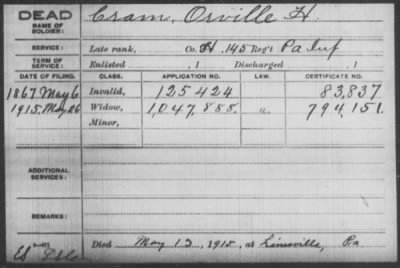 DEAD
NAME OF SOLDIER:
Cram, Orville H.
SERVICE:
Late rank, Co. H. 145 Reg't Pa Inf
TERM OF SERVICE:
Enlisted , 1 Discharged , 1
DATE OF FILING. CLASS. APPLICATION NO. LAW. CERTIFICATE NO.
1867 May 6 Invalid, 125424 83,837
1915. May 26 Widow, 1,047,888. a. 794,151.
Minor,
ADDITIONAL SERVICES:
REMARKS:
Died May 13, 1915, at Linesville, Pa.